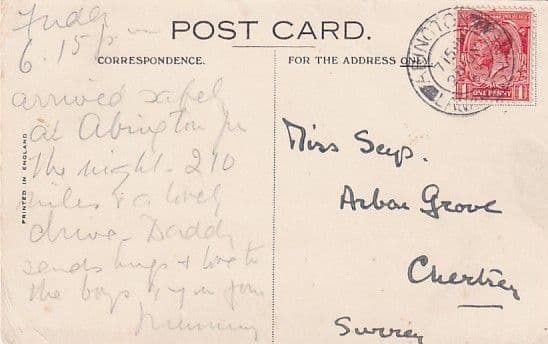 Friday
6.15 pm
POST CARD.
CORRESPONDENCE.
FOR THE ADDRESS ONLY.
arrived safely
at Abington for
the night. 210
miles & a lovely
drive. Daddy
sends hugs & love to
the boys & you from
Mummy
PRINTED IN ENGLAND
ABINGTON
LANARK
ONE PENNY
Miss Seys.
Grove
Chertsey
Surrey